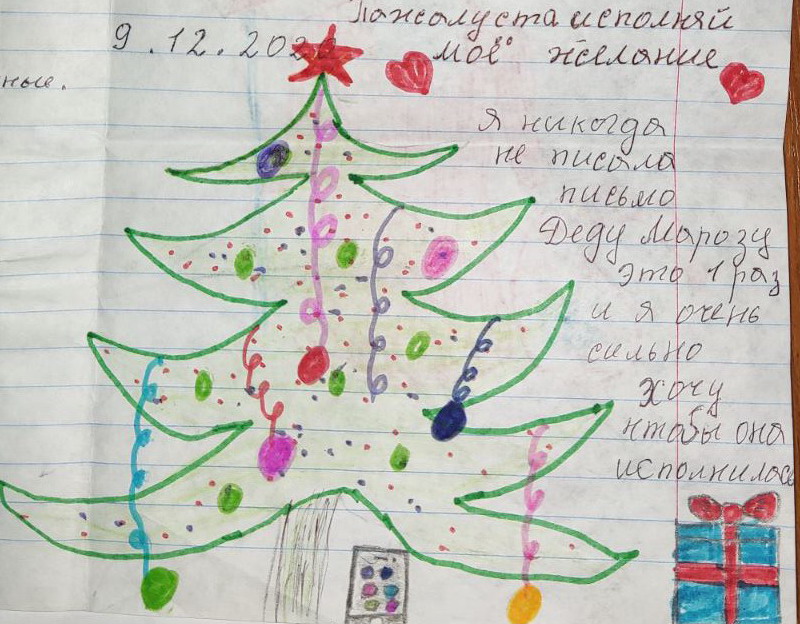 Пажалуста исполняй
9.12.202
моё желание
ные.
Я никогда
не писала
письмо
Деду Марозу
это 1 раз
и я очень
сильно
хочу
чтобы она
исполнилась